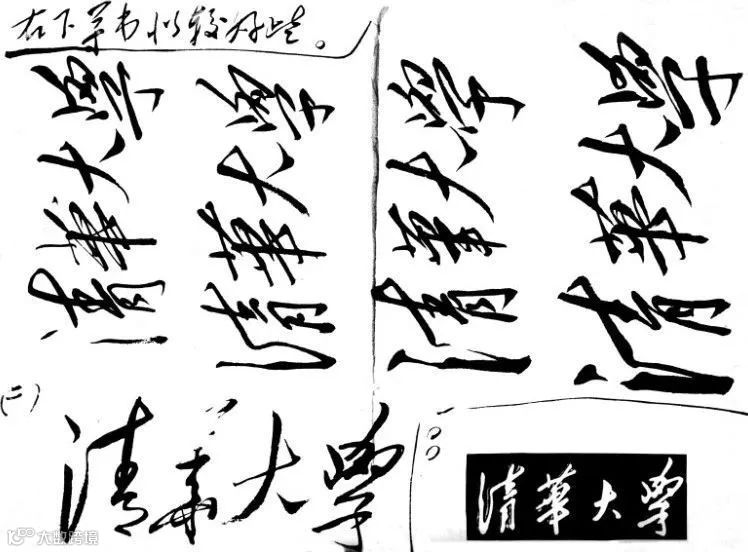 右下草书似较好些。
清華大學
清華大學
清華大學
清華大學
(二)
清華大學
清華大學
大数跨境